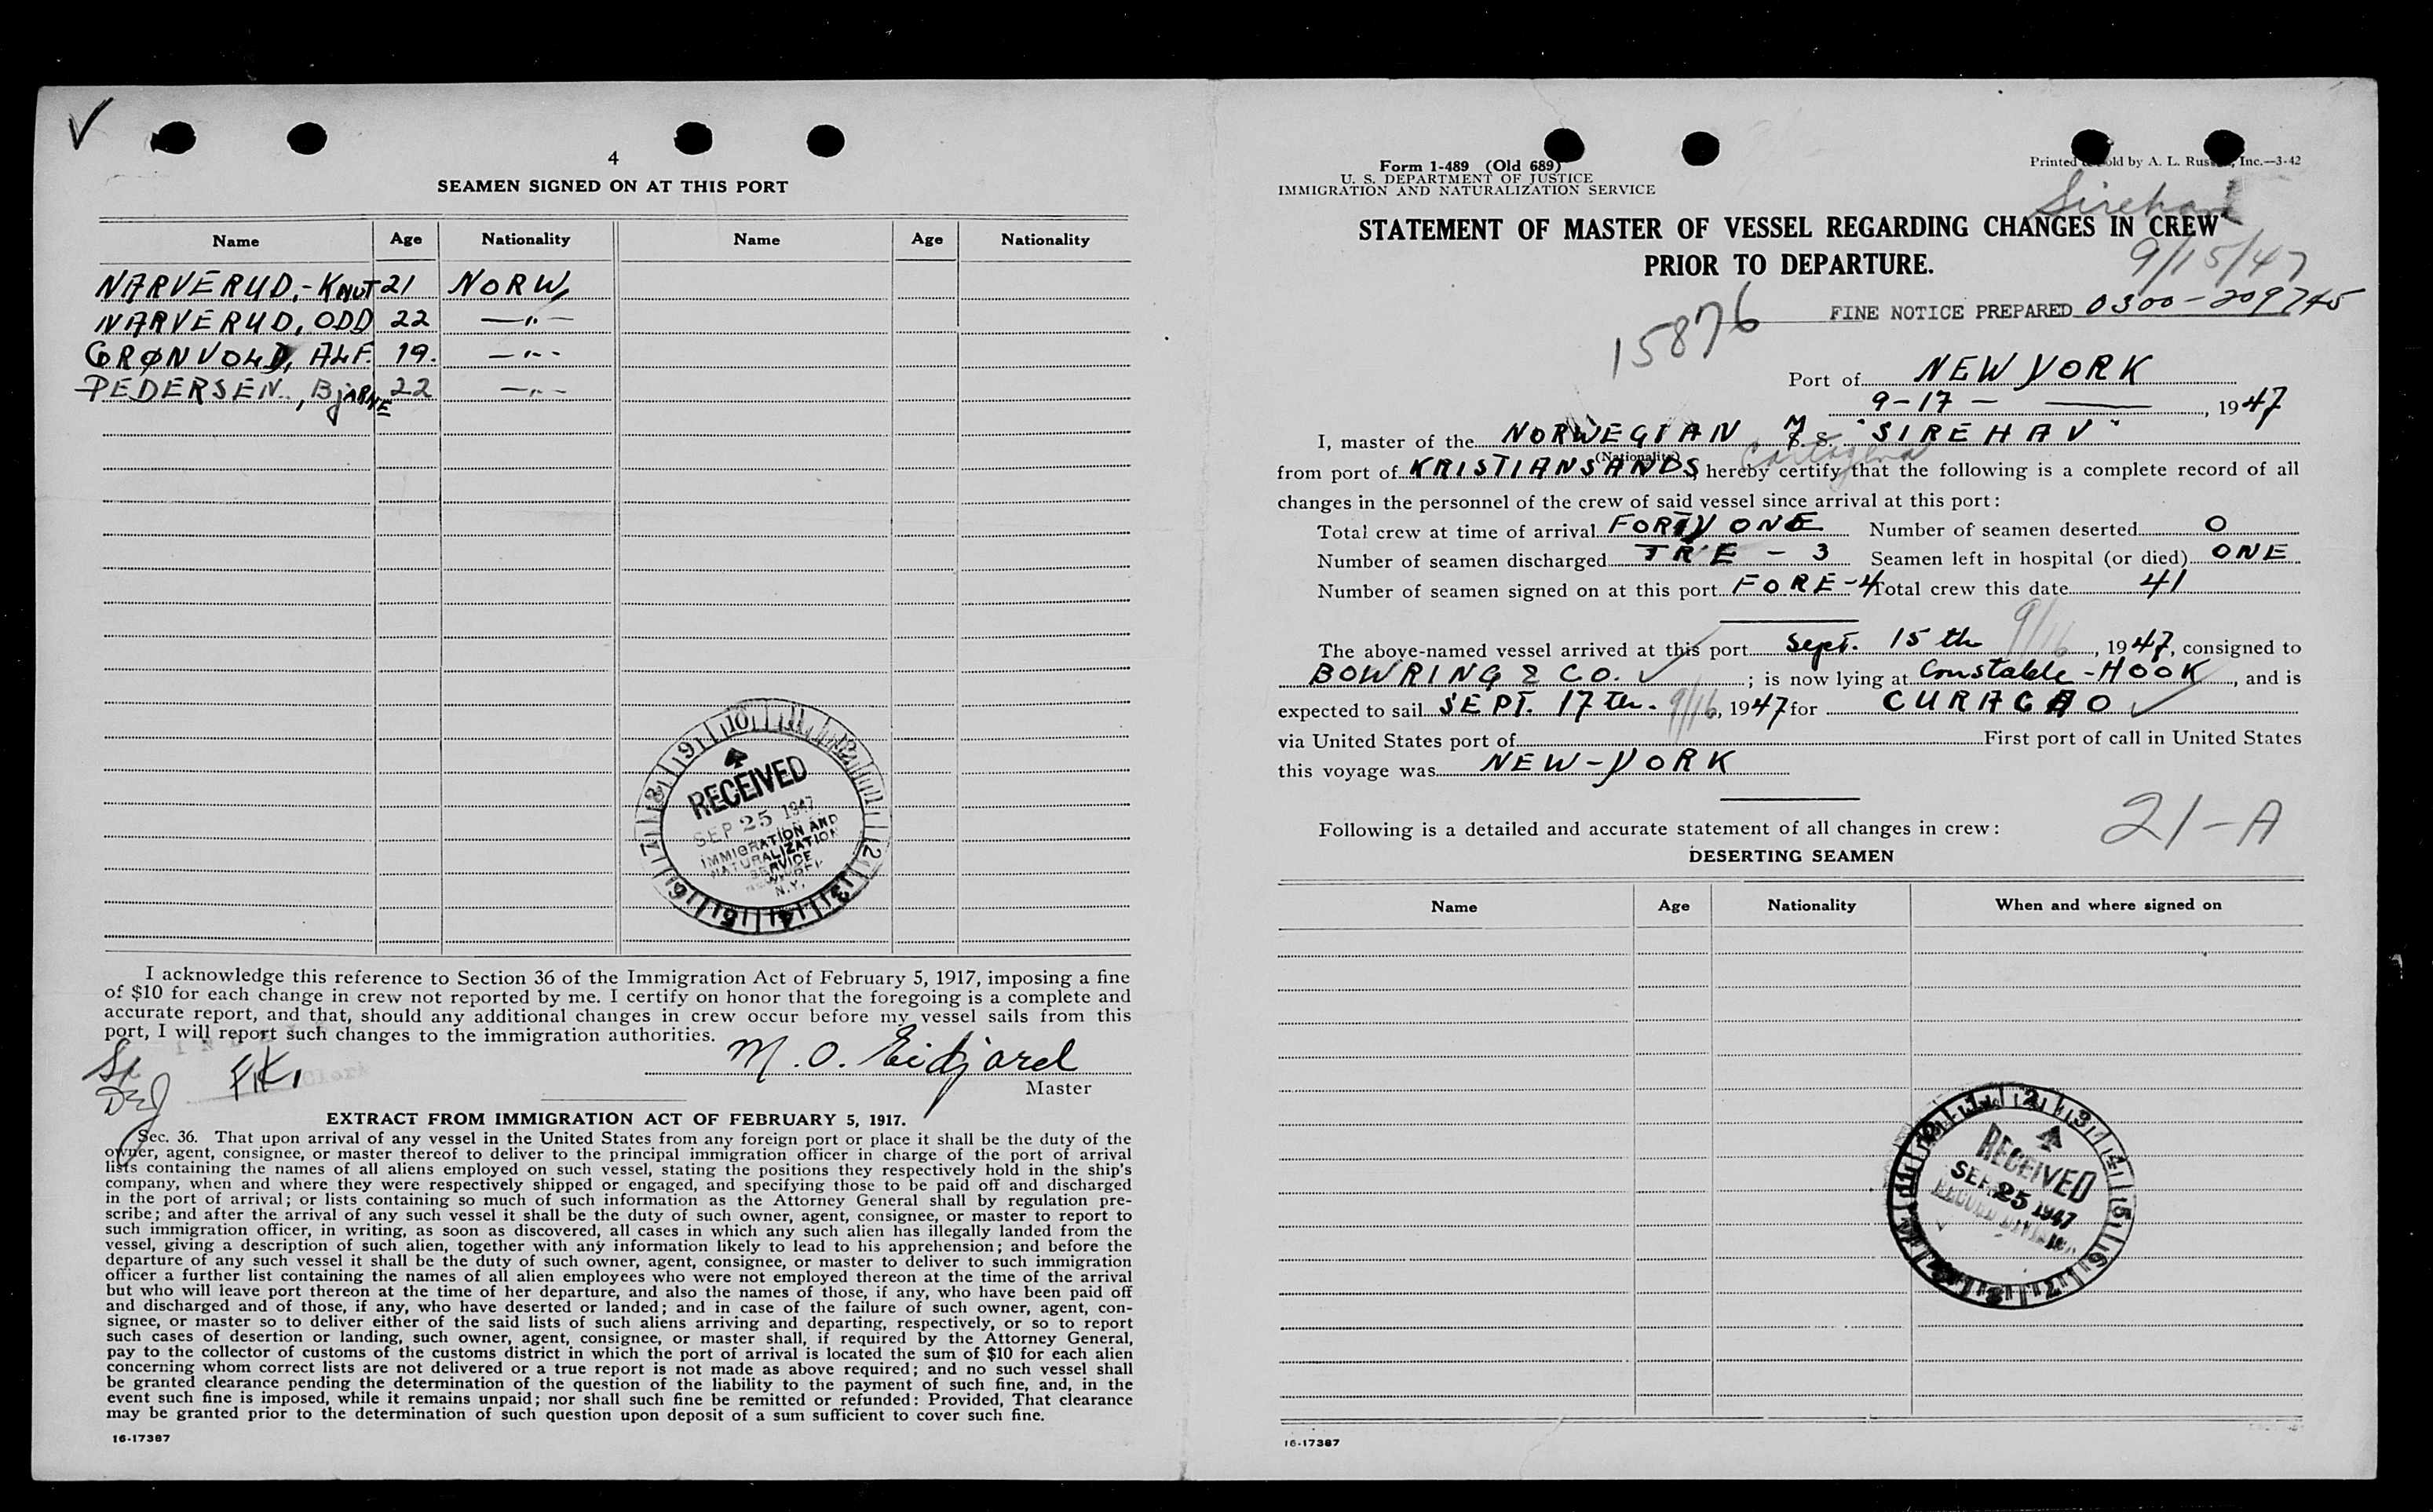 4
SEAMEN SIGNED ON AT THIS PORT
Name Age Nationality Name Age Nationality
NARVERUD,-KNUT 21 NORW,
NARVERUD, ODD 22 —〃—
GRØNVOLD, ALF. 19. —〃—
PEDERSEN, BjARNE 22 —〃—
RECEIVED
SEP 25 1947
IMMIGRATION AND
NATURALIZATION
SERVICE
N.Y.
I acknowledge this reference to Section 36 of the Immigration Act of February 5, 1917, imposing a fine
of $10 for each change in crew not reported by me. I certify on honor that the foregoing is a complete and
accurate report, and that, should any additional changes in crew occur before my vessel sails from this
port, I will report such changes to the immigration authorities.
M. O.
Clerk
Master
EXTRACT FROM IMMIGRATION ACT OF FEBRUARY 5, 1917.
Sec. 36. That upon arrival of any vessel in the United States from any foreign port or place it shall be the duty of the
owner, agent, consignee, or master thereof to deliver to the principal immigration officer in charge of the port of arrival
lists containing the names of all aliens employed on such vessel, stating the positions they respectively hold in the ship's
company, when and where they were respectively shipped or engaged, and specifying those to be paid off and discharged
in the port of arrival; or lists containing so much of such information as the Attorney General shall by regulation pre-
scribe; and after the arrival of any such vessel it shall be the duty of such owner, agent, consignee, or master to report to
such immigration officer, in writing, as soon as discovered, all cases in which any such alien has illegally landed from the
vessel, giving a description of such alien, together with any information likely to lead to his apprehension; and before the
departure of any such vessel it shall be the duty of such owner, agent, consignee, or master to deliver to such immigration
officer a further list containing the names of all alien employees who were not employed thereon at the time of the arrival
but who will leave port thereon at the time of her departure, and also the names of those, if any, who have been paid off
and discharged and of those, if any, who have deserted or landed; and in case of the failure of such owner, agent, con-
signee, or master so to deliver either of the said lists of such aliens arriving and departing, respectively, or so to report
such cases of desertion or landing, such owner, agent, consignee, or master shall, if required by the Attorney General,
pay to the collector of customs of the customs district in which the port of arrival is located the sum of $10 for each alien
concerning whom correct lists are not delivered or a true report is not made as above required; and no such vessel shall
be granted clearance pending the determination of the question of the liability to the payment of such fine, and, in the
event such fine is imposed, while it remains unpaid; nor shall such fine be remitted or refunded: Provided, That clearance
may be granted prior to the determination of such question upon deposit of a sum sufficient to cover such fine.
16-17387
Form 1-489 (Old 689)
U. S. DEPARTMENT OF JUSTICE
IMMIGRATION AND NATURALIZATION SERVICE
Printed old by A. L. Rus Inc.—3-42
Sirehav
STATEMENT OF MASTER OF VESSEL REGARDING CHANGES IN CREW
PRIOR TO DEPARTURE.
9/15/47
FINE NOTICE PREPARED 0300-209745
15876
Port of NEW YORK
9-17-, 1947
I, master of the NORWEGIAN M S. "SIREHAV"
(Nationality)
Cartagena
from port of KRISTIANSANDS, hereby certify that the following is a complete record of all
changes in the personnel of the crew of said vessel since arrival at this port:
Total crew at time of arrival FORTY ONE Number of seamen deserted 0
Number of seamen discharged TRE - 3 Seamen left in hospital (or died) ONE
Number of seamen signed on at this port FORE-4 Total crew this date 41
The above-named vessel arrived at this port Sept. 15th 9/16, 1947, consigned to
BOWRING & CO. ; is now lying at Constable-HOOK, and is
expected to sail SEPT. 17th. 9/16, 1947 for CURACAO
via United States port of First port of call in United States
this voyage was NEW-YORK
21-A
Following is a detailed and accurate statement of all changes in crew:
DESERTING SEAMEN
Name Age Nationality When and where signed on
RECEIVED
SEP 25 1947
RECORD DIVISION
16-17387